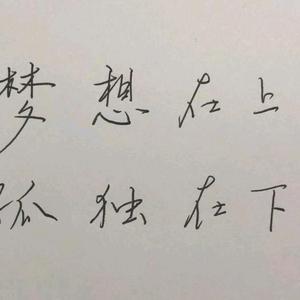 梦想在上
孤独在下